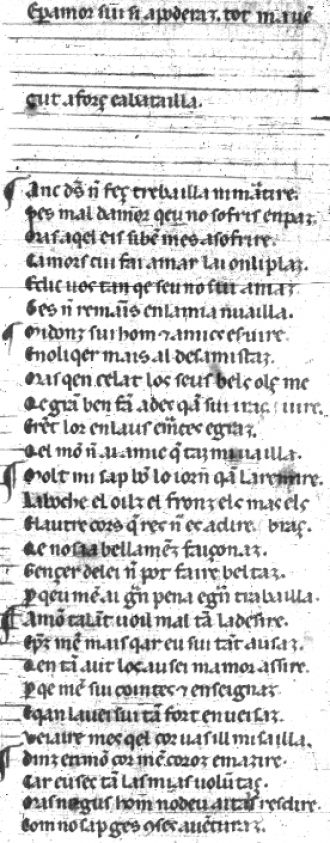 Eꝑ amor sui si apoderaz. tot maue
gut a forz e abatailla.
Anc ds n fez trebailla ni martire.
Ges mal damor qeu no sofris en paz.
Mas aqel eis sibem es a sofrire.
Camors cui fai amar lai on li plaz.
E dic uos tan qe seu no sui amaz
Ges n remans en la mia nuailla.
Midonz sui hom 7 amics e seruire.
E no li qer mais al des amistaz.
Mas qen celat los seus bels olz me
Qe gran ben fan ades qan sui
Gret lor en laus e merces e graz.
Qel mon n ai amic q tan mi uailla.
Molt mi sap bo lo iorn qan la remire.
La boche el oilz el fronz els mas els
E lautre cors q res n es a dire. braz.
Qe no sia bellamenz faiçonaz.
Gençer de lei n pot faire beltaz.
ꝑ qeu men ai gran pena e gran trabailla.
A mon talant uoil mal tan la desire.
E prez me mais qar eu sui tant ausaz.
Qen tan aut loc ausei mamor assire.
ꝑ qe men sui cointes 7 enseignaz
E qan la uei sui tan fort enueisaz.
Veiaire mes qel cor uas ill mi sailla.
Dinz en mon cor me coroz e mazire.
Car eu sec tan las mias voluntaz.
Mas negus hom no deu aitals res dire.
Com no sap ges cos es auenturaz.